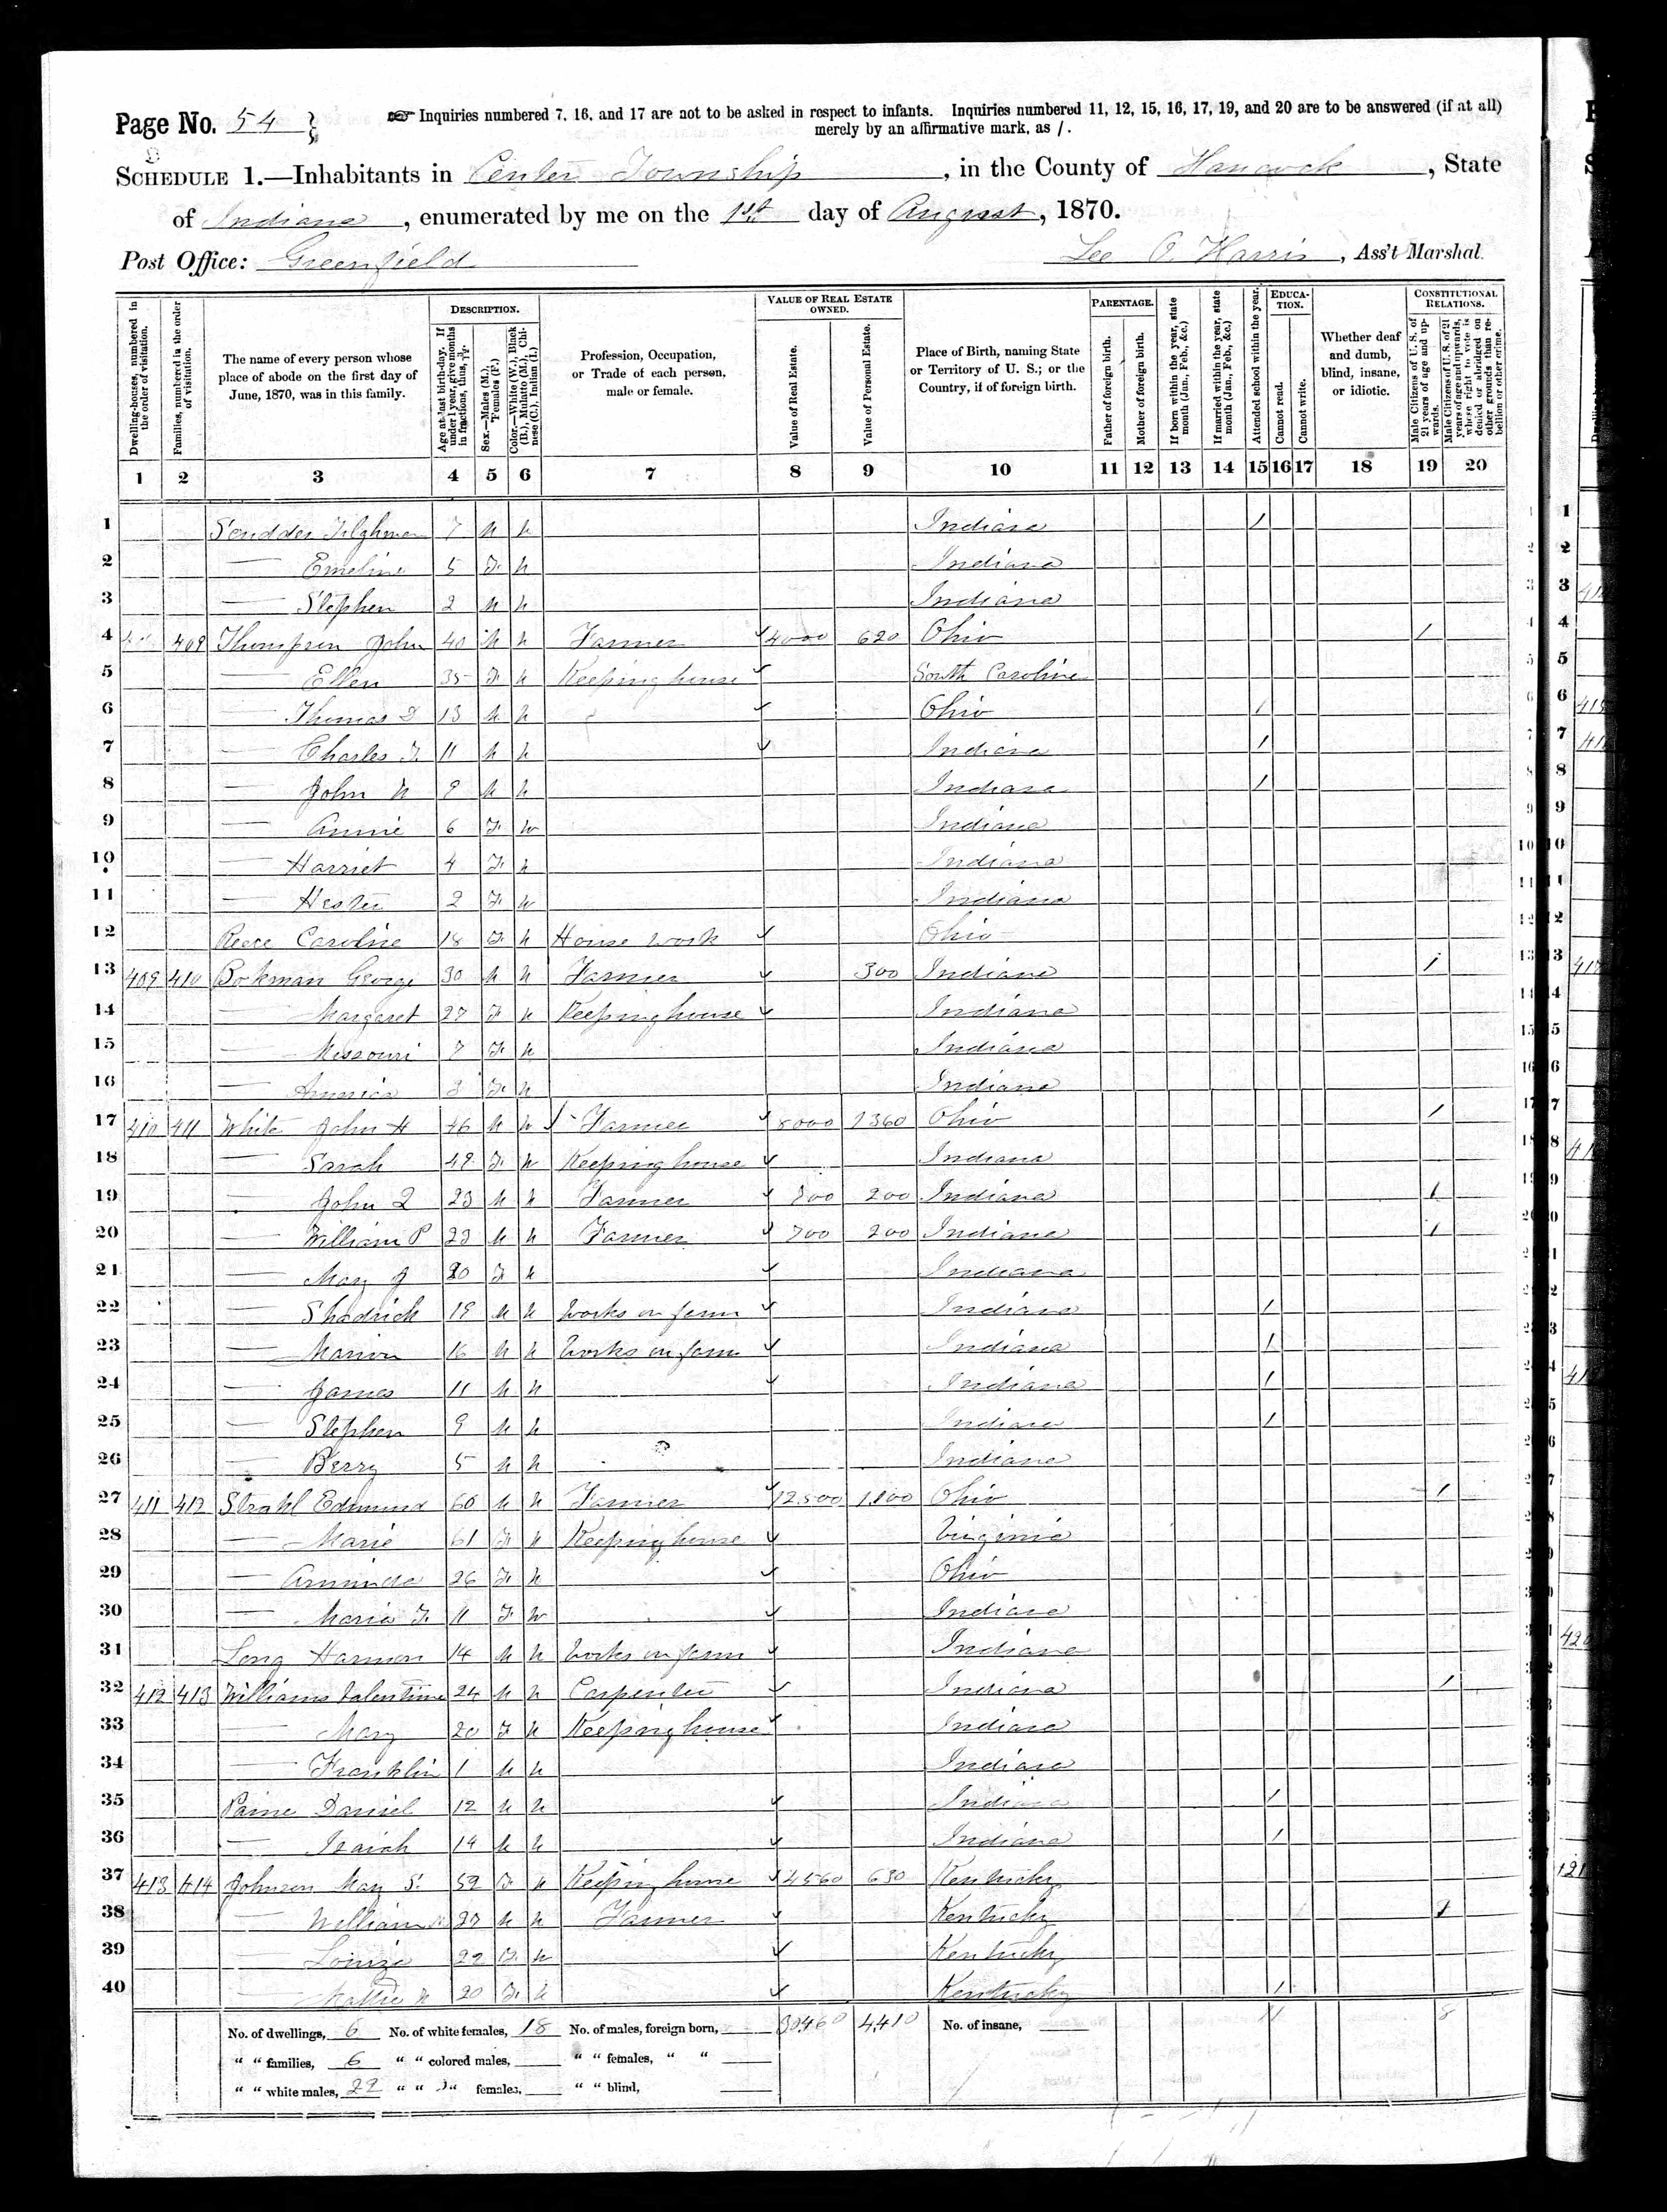 Page No. 54
☞ Inquiries numbered 7, 16, and 17 are not to be asked in respect to infants. Inquiries numbered 11, 12, 15, 16, 17, 19, and 20 are to be answered (if at all)
merely by an affirmative mark, as /.
SCHEDULE 1.—Inhabitants in Center Township, in the County of Hancock, State
of Indiana, enumerated by me on the 1st day of August, 1870.
Post Office: Greenfield
Lee O. Harris, Ass't Marshal.
Dwelling-houses, numbered in the order of visitation.
Families, numbered in the order of visitation.
The name of every person whose place of abode on the first day of June, 1870, was in this family.
DESCRIPTION.
Age at last birth-day. If under 1 year, give months in fractions, thus, 3/12.
Sex.—Males (M.), Females (F.)
Color.—White (W.), Black (B.), Mulatto (M.), Chinese (C.), Indian (I.)
Profession, Occupation, or Trade of each person, male or female.
VALUE OF REAL ESTATE OWNED.
Value of Real Estate.
Value of Personal Estate.
Place of Birth, naming State or Territory of U. S.; or the Country, if of foreign birth.
PARENTAGE.
Father of foreign birth.
Mother of foreign birth.
If born within the year, state month (Jan., Feb., &c.)
If married within the year, state month (Jan., Feb., &c.)
Attended school within the year.
EDUCATION.
Cannot read.
Cannot write.
Whether deaf and dumb, blind, insane, or idiotic.
CONSTITUTIONAL RELATIONS.
Male Citizens of U. S. of 21 years of age and upwards.
Male Citizens of U. S. of 21 years of age and upwards, whose right to vote is denied or abridged on other grounds than rebellion or other crime.
1 2 3 4 5 6 7 8 9 10 11 12 13 14 15 16 17 18 19 20
1 Scudder Tilghman 7 M W Indiana /
2 — Emeline 5 F. W Indiana
3 — Stephen 2 M W Indiana
4 409 Thompson John 40 M W Farmer 4000 620 Ohio /
5 — Ellen 35 F. W Keeping house South Carolina
6 — Thomas D 13 M W Ohio /
7 — Charles F. 11 M W Indiana /
8 — John W 9 M W Indiana /
9 — Annie 6 F. W Indiana
10 — Harriet 4 F. W Indiana
11 — Hester 2 F. W Indiana
12 Reece Caroline 18 F. W House work Ohio
13 409 410 Bokman George 30 M W Farmer 300 Indiana /
14 — Margaret 27 F. W Keeping house Indiana
15 — Missouri 7 F. W Indiana
16 — 3 F. W Indiana
17 410 411 White John H 46 M W Farmer 8000 1360 Ohio /
18 — Sarah 49 F. W Keeping house Indiana
19 — John Q 23 M W Farmer 700 200 Indiana /
20 — William P 23 M W Farmer 700 200 Indiana /
21 — Mary J 20 F. W Indiana
22 — Shadrick 19 M W Works on farm Indiana /
23 — Marion 16 M W Works on farm Indiana /
24 — James 11 M W Indiana /
25 — Stephen 9 M W Indiana /
26 — Berry 5 M W Indiana
27 411 412 Strahl Edmund 60 M W Farmer 12,500 1,100 Ohio /
28 — Maria 61 F. W Keeping house Virginia
29 — Arminda 26 F. W Ohio
30 — Maria F. 11 F. W Indiana
31 Long Harmon 14 M W Works on farm Indiana
32 412 413 Williams Valentine 24 M W Carpenter Indiana /
33 — Mary 20 F. W Keeping house Indiana
34 — Franklin 1 M W Indiana
35 Paine Daniel 12 M W Indiana /
36 — Isaiah 14 M W Indiana /
37 413 414 Johnson Mary S. 59 F. W Keeping house 4560 630 Kentucky
38 — William 27 M W Farmer Kentucky /
39 — Louiza 22 F. W Kentucky
40 — Mattie W 20 F. W Kentucky /
No. of dwellings, 6 No. of white females, 18 No. of males, foreign born, 30460 4,410 No. of insane, 11 8
" " families, 6 " " colored males, " " females, " "
" " white males, 22 " " " females, " " blind,